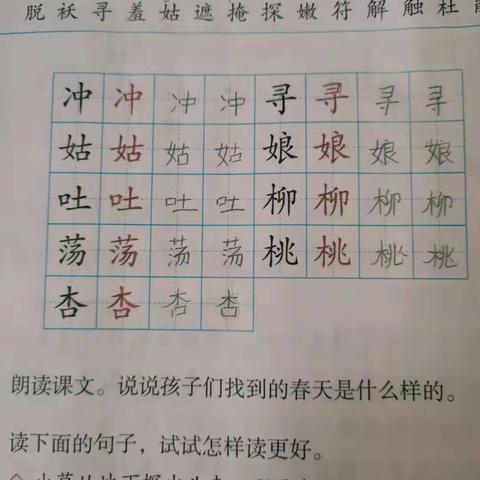 脱 袄 寻 羞 姑 遮 掩 探 嫩 符 解 触 杜
冲 冲 冲 冲 寻 寻 寻 寻
姑 姑 姑 姑 娘 娘 娘 娘
吐 吐 吐 吐 柳 柳 柳 柳
荡 荡 荡 荡 桃 桃 桃 桃
杏 杏 杏 杏
朗读课文。说说孩子们找到的春天是什么样的。
读下面的句子，试试怎样读更好。
小草从地下探出头来